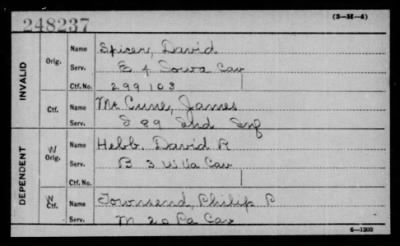 248237
(3-M-4)
INVALID
Orig.
Name Spicer, David
Serv. E 4 Iowa Cav
Ctf. No. 299103
Ctf.
Name McCune, James
Serv. I 89 Ind Inf
DEPENDENT
W Orig.
Name Hebb, David R
Serv. B 3 W Va Cav
Ctf. No.
W Ctf.
Name Townsend, Philip P
Serv. M 20 Pa Cav
6-1303